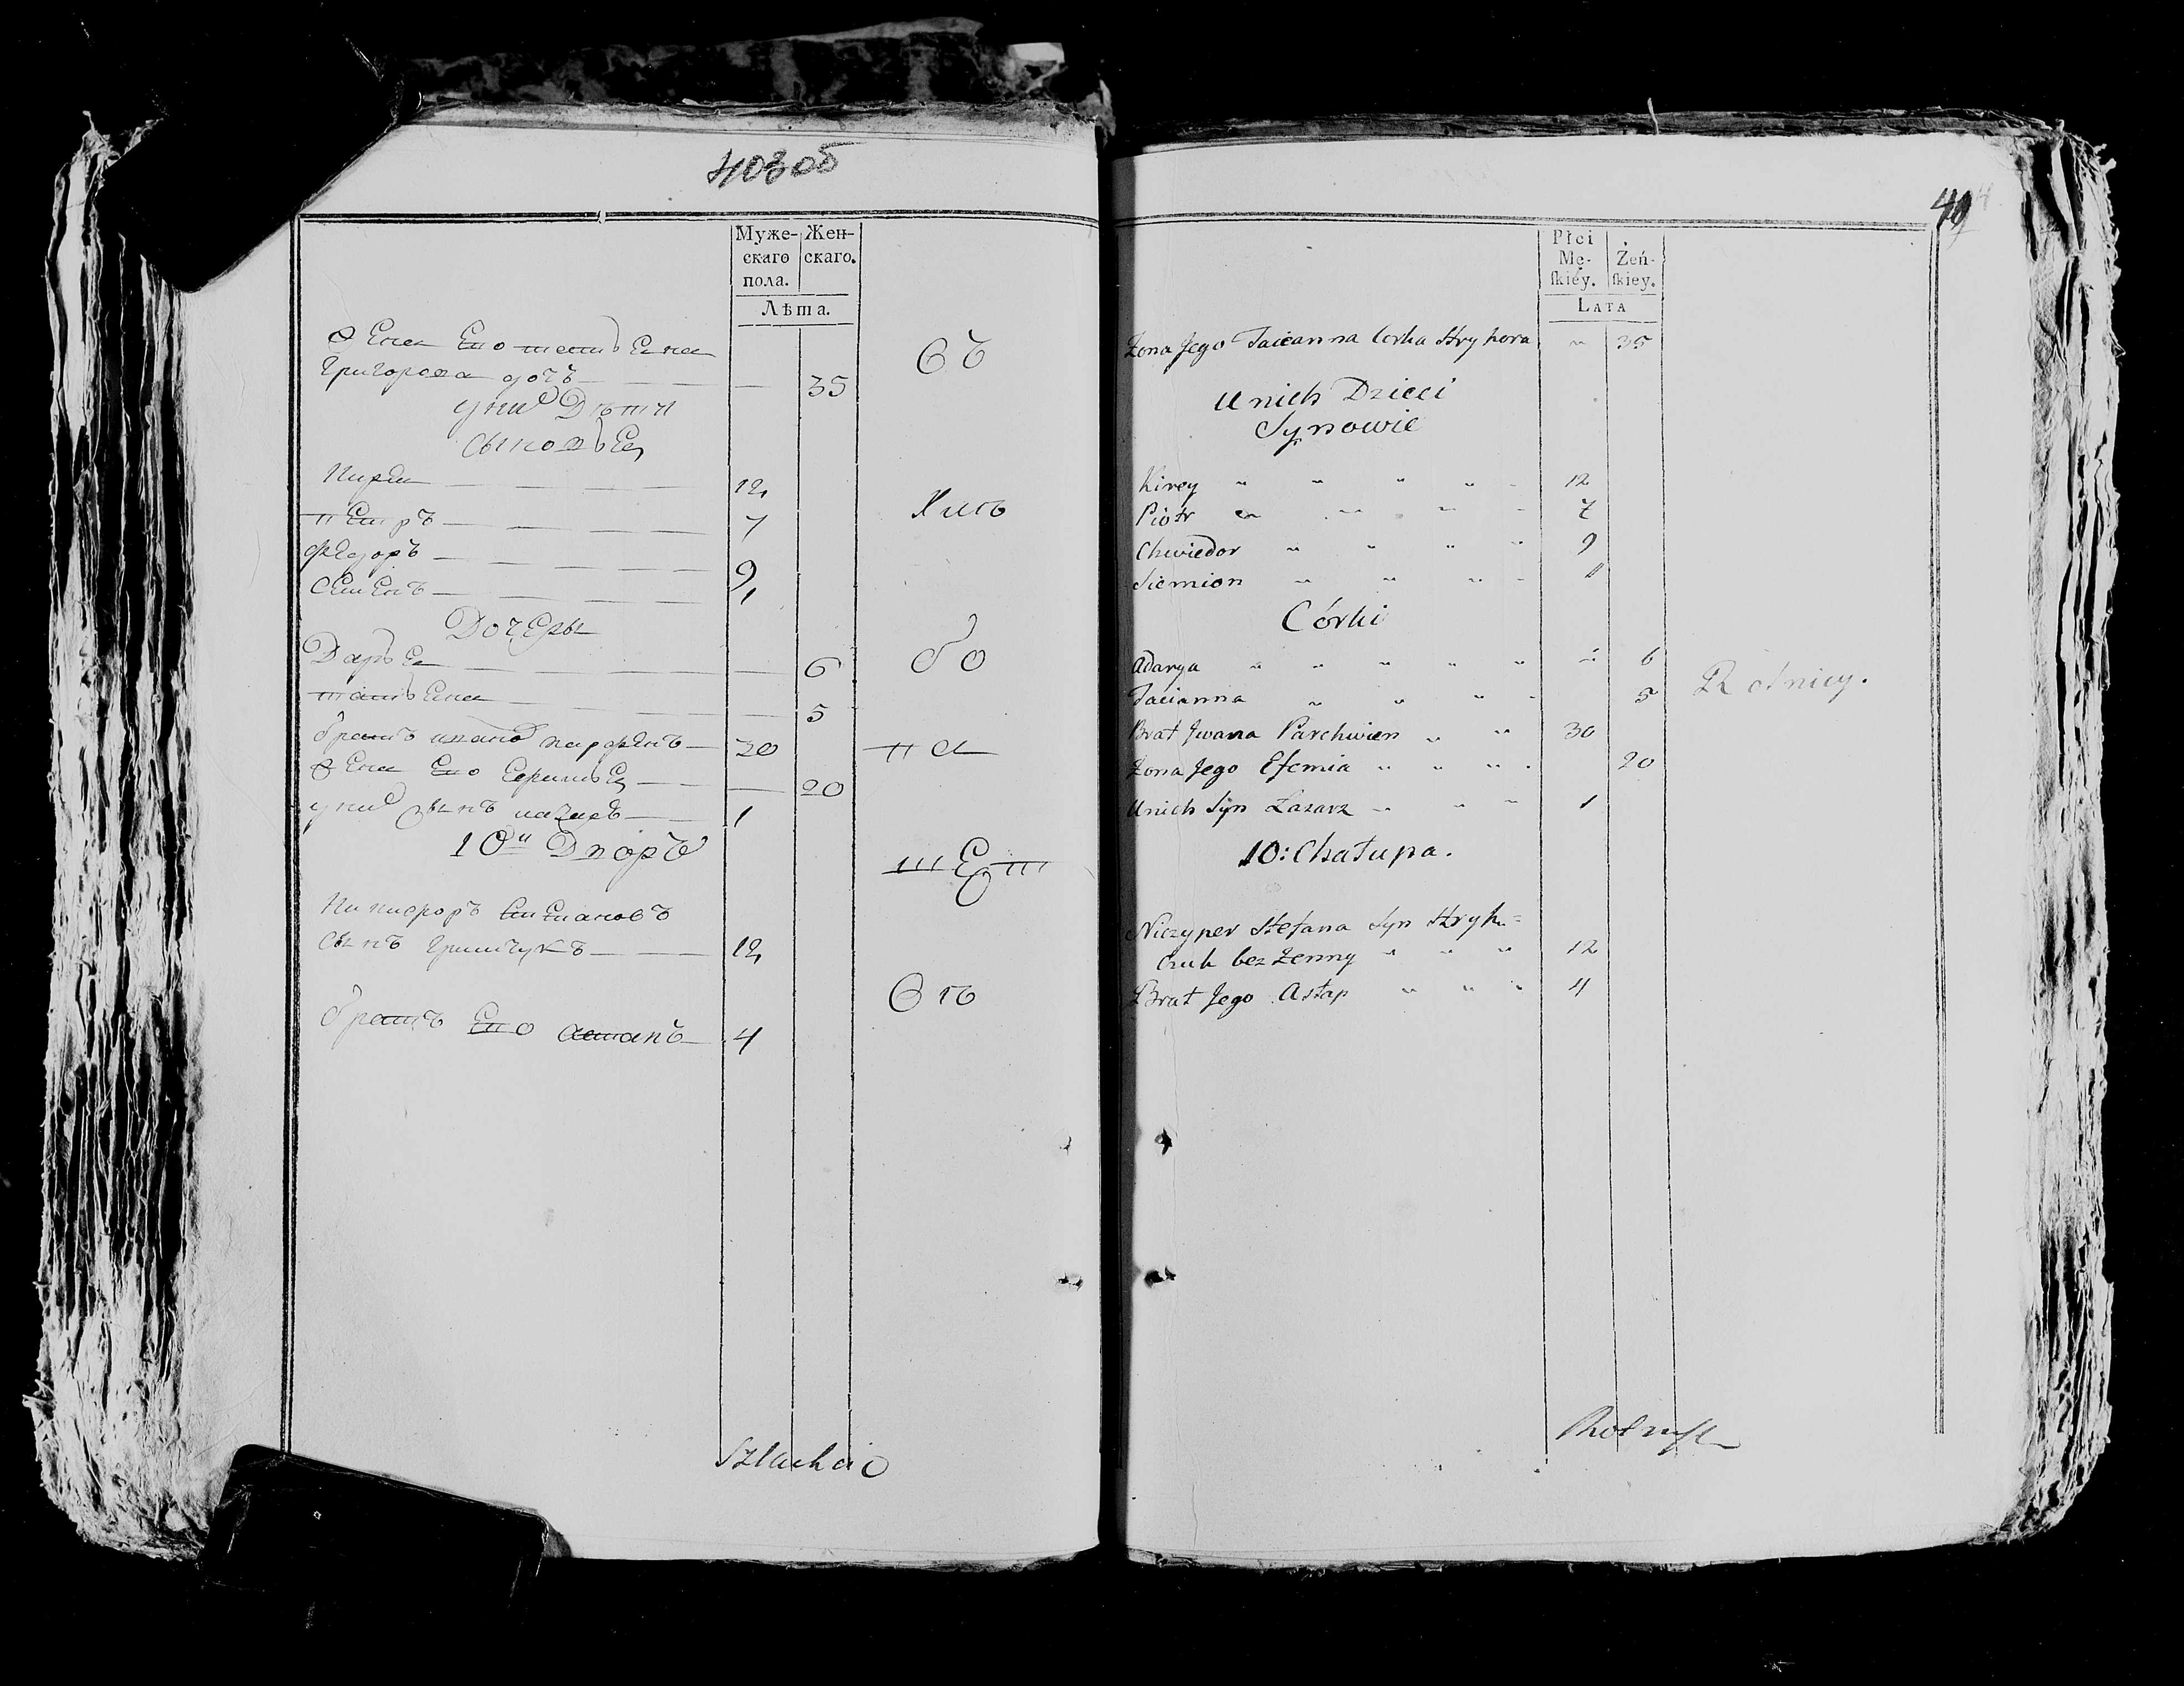 403об
Муже- Жен-
скаго скаго.
пола.
Лѣта.
жена его татьена
Григорова дочь — 35
у них Дѣти
сыновье
Кирей 12
петръ 7
федоръ 9
семенъ 1
Дочеры
Дарье — 6
татьена — 5
братъ ивана парфенъ 30
жена его Ефимье — 20
у них сынъ лазаръ 1
10й Дворъ
Никифоръ Степановъ
сынъ Гришчукъ 12
братъ его астапъ 4
Хлѣ
бо
па
Szlachcic
40
Płci
Mę- Żeń-
skiéy. skiey.
LATA
Żona Jego Tacianna Corka Hryhora " 35
U nich Dzieci
Synowie
Kirey " " " " 12
Piotr " " " 7
Chwiedor " " " " 9
Siemion " " " 1
Córki
Adarya " " " " " " 6
Tacianna " " " 5
Rolnicy.
Brat Jwana Parchwien " " 30
Żona Jego Efemia " " " 20
U nich Syn Łazarz " " " 1
10: Chałupa.
Niczyper Stefana Syn Hryh=
czuk bez Żenny " " " 12
Brat Jego Astap " " " 4